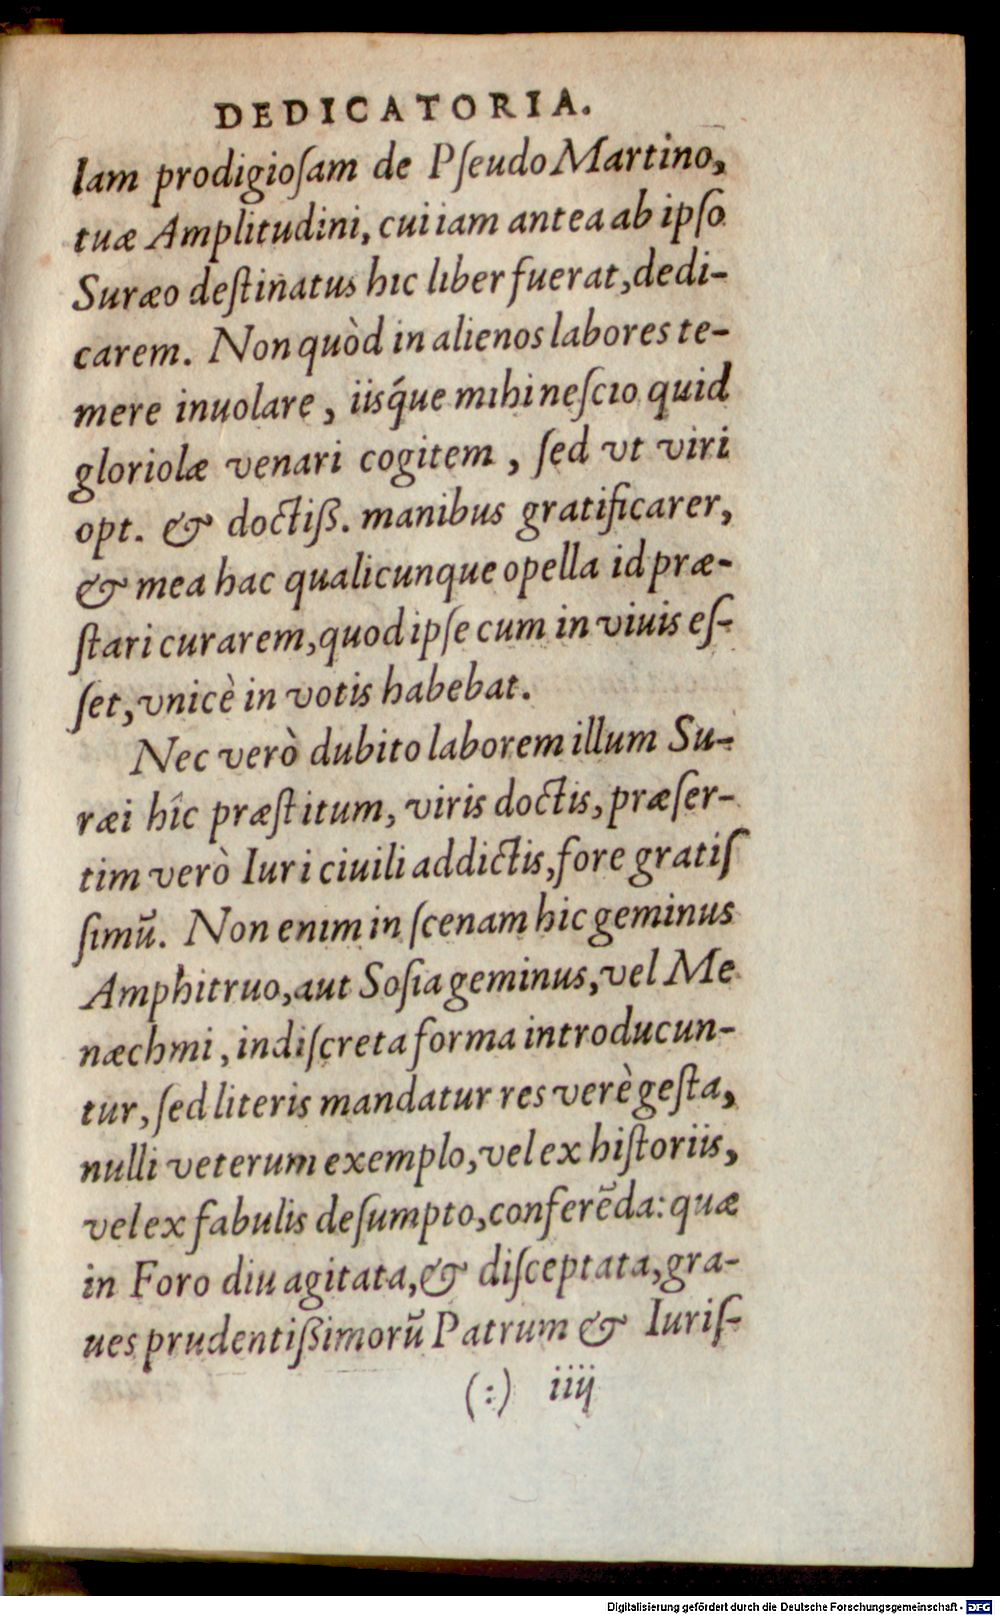 DEDICATORIA.
lam prodigioſam de PſeudoMartino,
tuæ Amplitudini, cui iam antea ab ipſo
Suræo deſtinatus hic liber fuerat, dedi-
carem. Non quòd in alienos labores te-
mere inuolare, iisq́ue mihi neſcio quid
gloriolæ venari cogitem, ſed vt viri
opt. & doctiß. manibus gratificarer,
& mea hac qualicunque opella id præ-
ſtari curarem, quod ipſe cum in viuis eſ-
ſet, vnicè in votis habebat.
Nec verò dubito laborem illum Su-
ræi hîc præſtitum, viris doctis, præſer-
tim verò Iuri ciuili addictis, fore gratiſ
ſimũ. Non enim in ſcenam hic geminus
Amphitruo, aut Soſia geminus, vel Me
næchmi, indiſcreta forma introducun-
tur, ſed literis mandatur res verè geſta,
nulli veterum exemplo, vel ex hiſtoriis,
vel ex fabulis deſumpto, conferẽda: quæ
in Foro diu agitata, & diſceptata, gra-
ues prudentißimorũ Patrum & Iuriſ-
(:) iiij
Digitalisierung gefördert durch die Deutsche Forschungsgemeinschaft - DFG